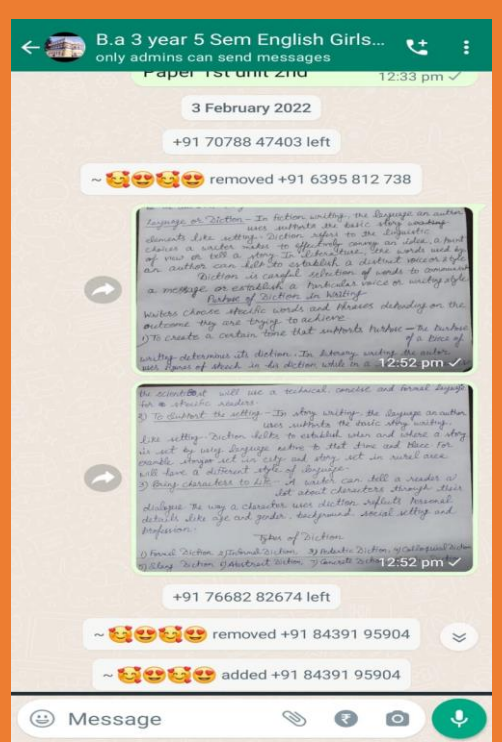 B.a 3 year 5 Sem English Girls...
only admins can send messages
Paper 1st unit 2nd
12:33 pm
3 February 2022
+91 70788 47403 left
~ 🥰😍🥰😍 removed +91 6395 812 738
Language or Diction - In fiction writing, the language an author
uses supports the basic story
elements like setting. Diction refers to the linguistic
choices a writer makes to effectively convey an idea, a point
of view or tell a story. In literature, the words used by
an author can help to establish a distinct voice or style
Diction is careful selection of words to communicate
a message or establish a particular voice or writing style.
Purpose of Diction in Writing
Writers choose specific words and phrases depending on the
outcome they are trying to achieve
1) To create a certain tone that supports purpose - The purpose
of a piece of
writing determines its diction. In literary writing the author
uses figures of speech in his diction while in a
12:52 pm
the scientist will use a technical, concise and formal language
for a specific readers.
2) To Support the setting - In story writing, the language an author
uses supports the basic story writing,
like setting. Diction helps to establish when and where a story
is set by using language native to that time and place For
example stories set in city and story set in rural area
will have a different style of language.
3) Bring characters to Life - A writer can tell a reader a
lot about characters through their
dialogue The way a character uses diction reflects personal
details like age and gender, background social setting and
Profession.
Types of Diction
1) Formal Diction 2) Informal Diction 3) Pedantic Diction, 4) Colloquial Diction
5) Slang Diction 6) Abstract Diction 7) Concrete
12:52 pm
+91 76682 82674 left
~ 🥰😍🥰😍 removed +91 84391 95904
~ 🥰😍🥰😍 added +91 84391 95904
Message